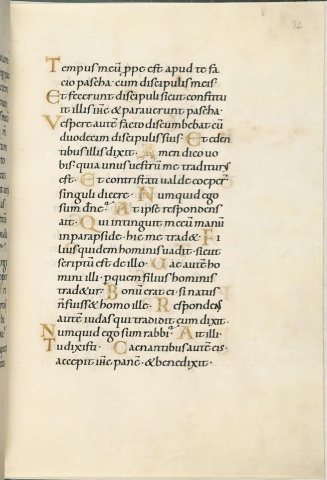 32
Tempus meū ꝓpe est apud te fa
cio pascha cum discipulis meis·
Et fecerunt discipuli sicut constitu
it illis ih̄s & parauerunt pascha·
Vespere autē facto discumbebat cū
duodecim discipulis suis· Et eden
tibus illis dixit· Amen dico uo
bis· quia unus uestrūm me traditurs
est· Et contristati ualde coeperˉ
singuli dicere· Numquid ego
sum dn̄e? At ipse respondens
ait· Qui intinguit mecū manū
in parapside· hic me trad&· Fi
lius quidem hominis uadit· sicut
scriptū est de illo· Uae autē ho
mini illi· p̱ quem filius hominis
trad&ur· Bonū erat ei· si natus
n̄ fuiss& homo ille· Respondens
autē iudas qui tradidit eum dixit·
Numquid ego sum rabbi? Ait illi·
Tu dixisti· Caenantibus autē eis·
accepit ih̄s panē· & benedixit·